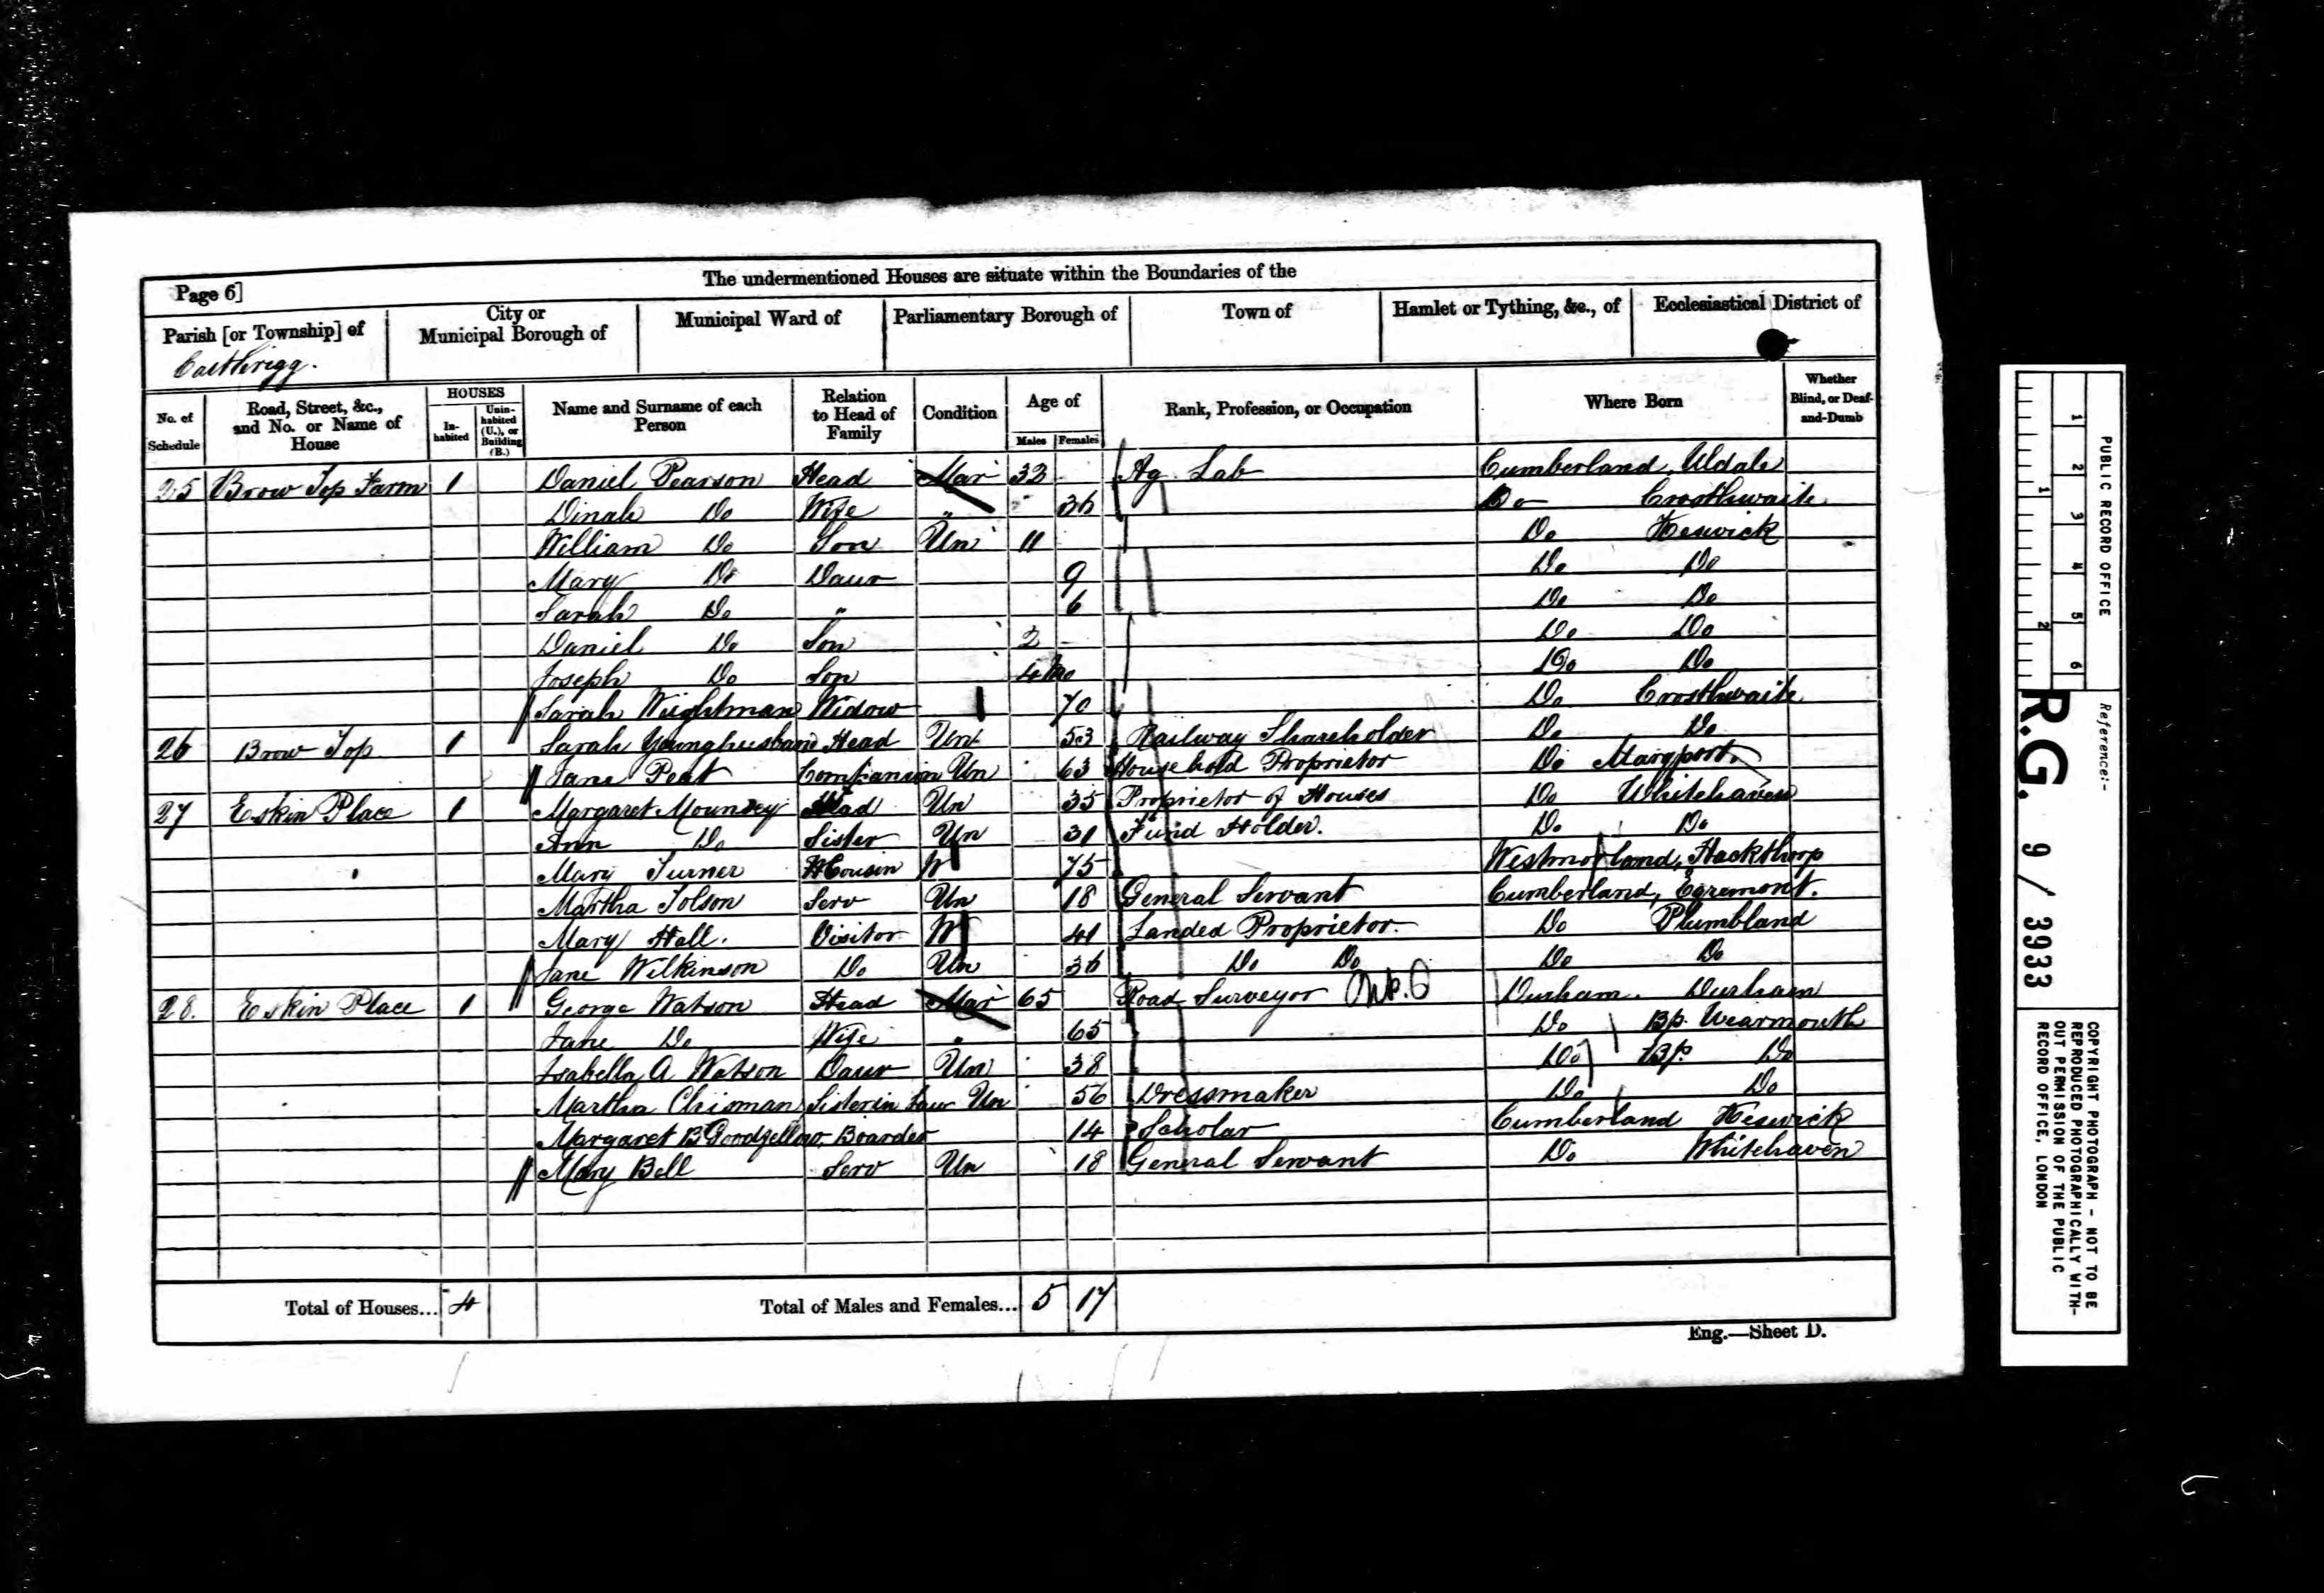 The undermentioned Houses are situate within the Boundaries of the
Page 6]
Parish [or Township] of
City or Municipal Borough of
Municipal Ward of
Parliamentary Borough of
Town of
Hamlet or Tything, &c., of
Ecclesiastical District of
Castlerigg.
No. of Schedule
Road, Street, &c., and No. or Name of House
HOUSES
In-habited
Unin-habited (U.), or Building (B.)
Name and Surname of each Person
Relation to Head of Family
Condition
Age of
Males
Females
Rank, Profession, or Occupation
Where Born
Whether Blind, or Deaf-and-Dumb
25 Brow Top Farm 1 Daniel Pearson Head Mar 32 Ag. Lab Cumberland, Uldale
Dinah Do Wife " 36 Do Crosthwaite
William Do Son Un 11 Do Keswick
Mary Do Daur 9 Do Do
Sarah Do " 6 Do Do
Daniel Do Son 2 Do Do
Joseph Do Son 4 Mo Do Do
Sarah Wightman Widow 70 Do Crosthwaite
26 Brow Top 1 Sarah Younghusband Head Un 53 Railway Shareholder Do Do
Jane Peat Companion Un 63 Household Proprietor Do Maryport
27 Eskin Place 1 Margaret Mounsey Head Un 35 Proprietor of Houses Do Whitehaven
Ann Do Sister Un 31 Fund Holder. Do Do
Mary Turner Cousin W 75 Westmorland, Hackthorp
Martha Tolson Serv Un 18 General Servant Cumberland, Egremont.
Mary Hall. Visitor W 41 Landed Proprietor. Do Plumbland
Jane Wilkinson Do Un 36 Do Do Do Do
28. Eskin Place 1 George Watson Head Mar 65 Road Surveyor Durham. Durham
Jane Do Wife " 65 Do Bp. Wearmouth
Isabella A Watson Daur Un 38 Do Bp. Do
Martha Chisman Sister in Law Un 56 Dressmaker Do Do
Margaret B Goodfellow Boarder 14 Scholar Cumberland Keswick
Mary Bell Serv Un 18 General Servant Do Whitehaven
Total of Houses... 4 Total of Males and Females... 5 17
Eng.—Sheet D.
PUBLIC RECORD OFFICE
1 2 3 4 5 6
1 2
Reference:-
R.G. 9 / 3933
COPYRIGHT PHOTOGRAPH - NOT TO BE
REPRODUCED PHOTOGRAPHICALLY WITH-
OUT PERMISSION OF THE PUBLIC
RECORD OFFICE, LONDON